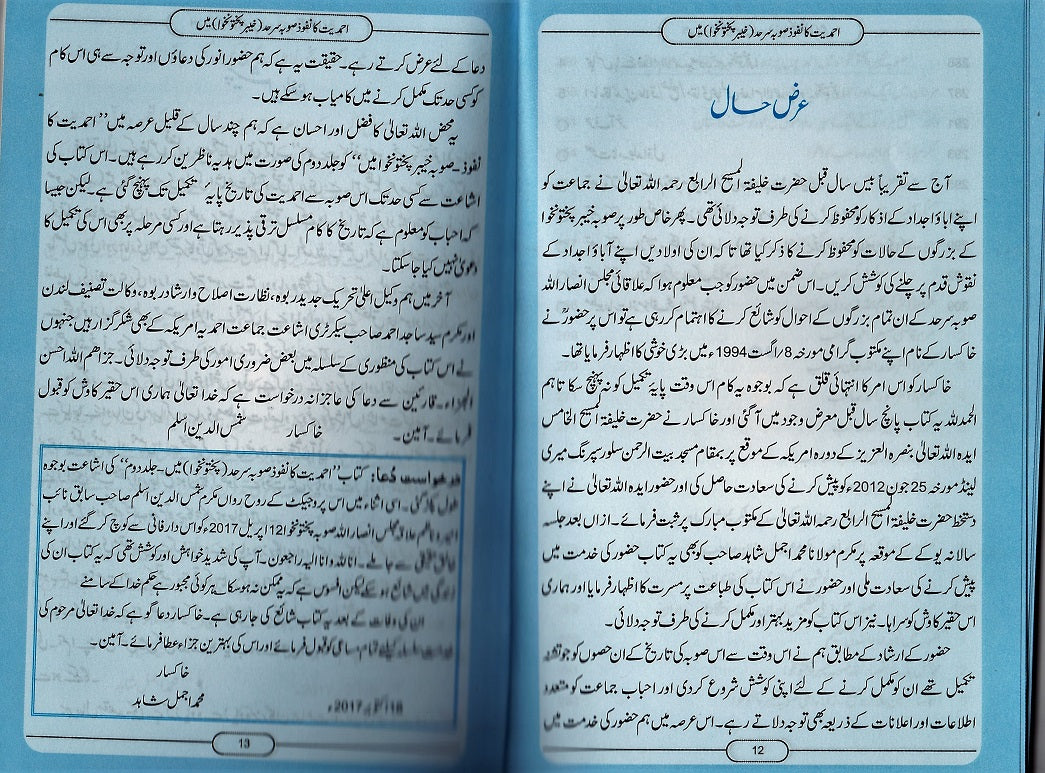 احمدیت کا نفوذ صوبہ سرحد (خیبر پختونخوا) میں
عرض حال
آج سے تقریباً بیس سال قبل حضرت خلیفۃ المسیح الرابع رحمہ اللہ تعالیٰ نے جماعت کو
اپنے اباؤ اجداد کے اذکار کو محفوظ کرنے کی طرف توجہ دلائی تھی۔ پھر خاص طور پر صوبہ خیبر پختونخوا
کے بزرگوں کے حالات کو محفوظ کرنے کا ذکر کیا تھا تاکہ ان کی اولادیں اپنے آباؤ اجداد کے
نقوش قدم پر چلنے کی کوشش کریں۔ اس ضمن میں حضور کو جب معلوم ہوا کہ علاقائی مجلس انصار اللہ
صوبہ سرحد کے ان تمام بزرگوں کے احوال کو شائع کرنے کا اہتمام کر رہی ہے تو اس پر حضورؒ نے
خاکسار کے نام اپنے مکتوب گرامی مورخہ 8/اگست 1994ء میں بڑی خوشی کا اظہار فرمایا تھا۔
خاکسار کو اس امر کا انتہائی قلق ہے کہ بوجوہ یہ کام اس وقت پایۂ تکمیل کو نہ پہنچ سکا تاہم
الحمد للہ یہ کتاب پانچ سال قبل معرض وجود میں آ گئی اور خاکسار نے حضرت خلیفۃ المسیح الخامس
ایدہ اللہ تعالیٰ بنصرہ العزیز کے دورہ امریکہ کے موقع پر بمقام مسجد بیت الرحمن سلور سپرنگ میری
لینڈ مورخہ 25 جون 2012ء کو پیش کرنے کی سعادت حاصل کی اور حضور ایدہ اللہ تعالیٰ نے اپنے
دستخط حضرت خلیفۃ المسیح الرابع رحمہ اللہ تعالیٰ کے مکتوب مبارک پر ثبت فرمائے۔ ازاں بعد جلسہ
سالانہ یو کے کے موقعہ پر مکرم مولانا محمد اجمل شاہد صاحب کو بھی یہ کتاب حضور کی خدمت میں
پیش کرنے کی سعادت ملی اور حضور نے اس کتاب کی طباعت پر مسرت کا اظہار فرمایا اور ہماری
اس حقیر کاوش کو سراہا۔ نیز اس کتاب کو مزید بہتر اور مکمل کرنے کی طرف توجہ دلائی۔
حضور کے ارشاد کے مطابق ہم نے اس وقت سے اس صوبہ کی تاریخ کے ان حصوں کو جو تشنہ
تکمیل تھے ان کو مکمل کرنے کے لئے اپنی کوشش شروع کر دی اور احباب جماعت کو متعدد
اطلاعات اور اعلانات کے ذریعہ بھی توجہ دلاتے رہے۔ اس عرصہ میں ہم حضور کی خدمت میں
12
احمدیت کا نفوذ صوبہ سرحد (خیبر پختونخوا) میں
دعا کے لئے عرض کرتے رہے۔ حقیقت یہ ہے کہ ہم حضور انور کی دعاؤں اور توجہ سے ہی اس کام
کو کسی حد تک مکمل کرنے میں کامیاب ہو سکے ہیں۔
یہ محض اللہ تعالیٰ کا فضل اور احسان ہے کہ ہم چند سال کے قلیل عرصہ میں ”احمدیت کا
نفوذ۔ صوبہ خیبر پختونخوا میں“ کو جلد دوم کی صورت میں ہدیہ ناظرین کر رہے ہیں۔ اس کتاب کی
اشاعت سے کسی حد تک اس صوبہ سے احمدیت کی تاریخ پایۂ تکمیل تک پہنچ گئی ہے۔ لیکن جیسا
کہ احباب کو معلوم ہے کہ تاریخ کا کام مسلسل ترقی پذیر رہتا ہے اور کسی مرحلہ پر بھی اس کی تکمیل کا
دعویٰ نہیں کیا جا سکتا۔
آخر میں ہم وکیل اعلیٰ تحریک جدید ربوہ، نظارت اصلاح و ارشاد ربوہ، وکالت تصنیف لندن
اور مکرم سید ساجد احمد صاحب سیکرٹری اشاعت جماعت احمدیہ امریکہ کے بھی شکر گزار ہیں جنہوں
نے اس کتاب کی منظوری کے سلسلہ میں بعض ضروری امور کی طرف توجہ دلائی۔ جزاھم اللہ احسن
الجزاء۔ قارئین سے دعا کی عاجزانہ درخواست ہے کہ خدا تعالیٰ ہماری اس حقیر کاوش کو قبول
فرمائے۔ آمین۔ خاکسار شمس الدین اسلم
درخواست دُعا: کتاب ”احمدیت کا نفوذ صوبہ سرحد (پختونخوا) میں۔ جلد دوم“ کی اشاعت بوجوہ
طول پکڑ گئی۔ اسی اثناء میں اس پروجیکٹ کے روح رواں مکرم شمس الدین اسلم صاحب سابق نائب
امیر و ناظم علاقہ مجلس انصار اللہ صوبہ پختونخوا 12 اپریل 2017ء کو اس دار فانی سے کوچ کر گئے اور اپنے
خالق حقیقی سے جا ملے۔ انا للہ وانا الیہ راجعون۔ آپ کی شدید خواہش اور کوشش تھی کہ یہ کتاب ان کی
زندگی میں شائع ہو سکے لیکن افسوس ہے کہ یہ ممکن نہ ہو سکا۔ پر کوئی مجبور ہے حکم خدا کے سامنے
ان کی وفات کے بعد یہ کتاب شائع کی جا رہی ہے۔ خاکسار دعا گو ہے کہ خدا تعالیٰ مرحوم کی
خدمت سلسلہ کیلئے تمام مساعی کو قبول فرمائے اور اس کی بہترین جزاء عطا فرمائے۔ آمین۔
خاکسار
محمد اجمل شاہد
18 اکتوبر 2017ء
13